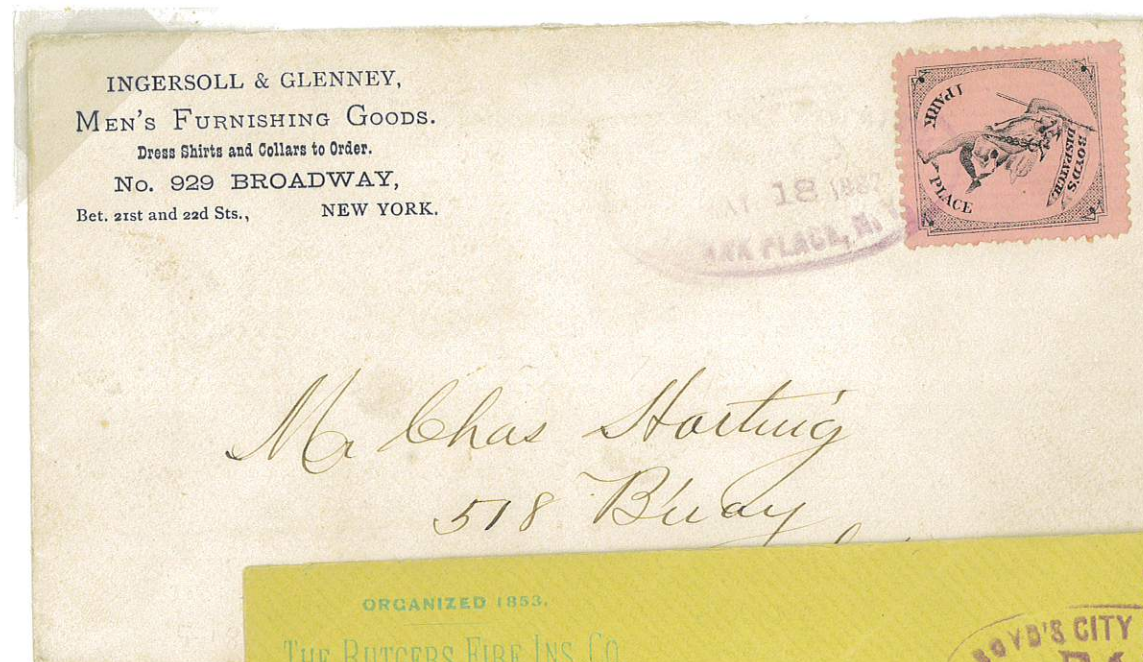 INGERSOLL & GLENNEY,
MEN'S FURNISHING GOODS.
Dress Shirts and Collars to Order.
No. 929 BROADWAY,
Bet. 21st and 22d Sts., NEW YORK.
18 1887
PLACE, N.
BOYD'S
DISPATCH
1 PARK
PLACE
Mr Chas Hartung
518 B'way
ORGANIZED 1853.
THE RUTGERS FIRE INS. CO.
BOYD'S CITY